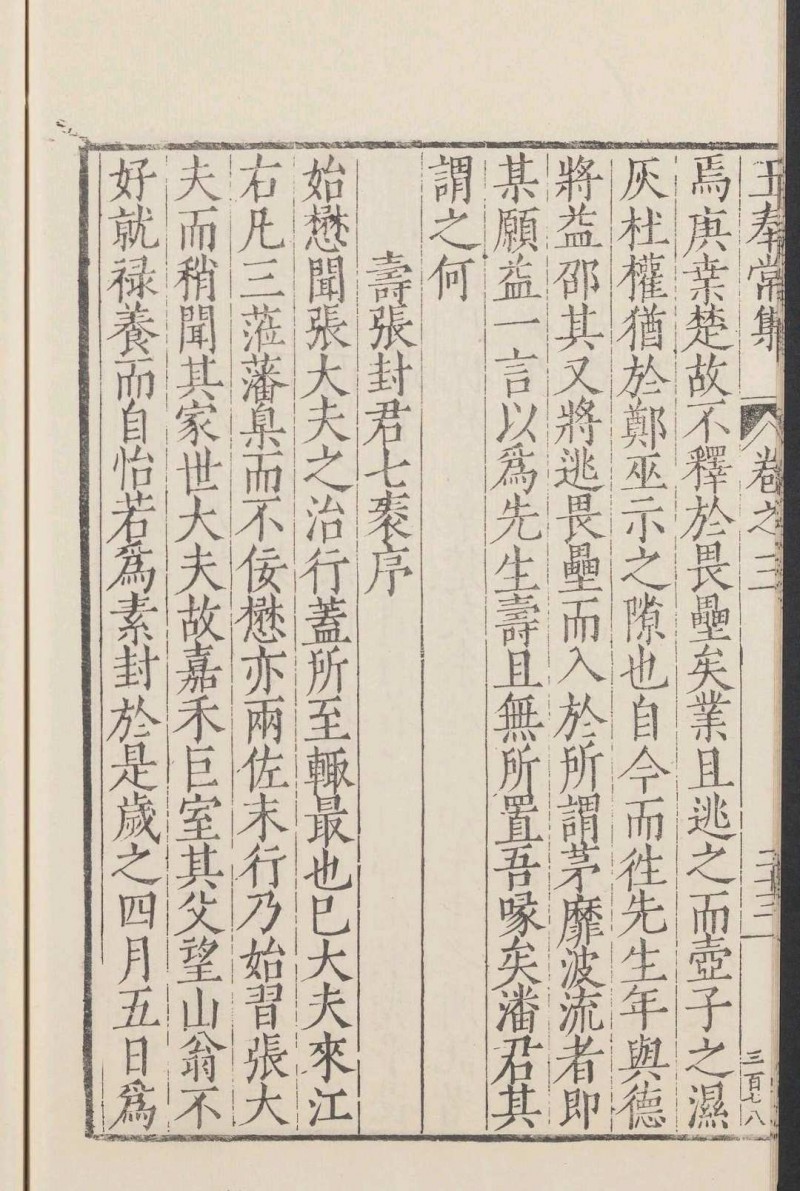 王奉常集 卷之三 二十三 三百七八
焉庚桒楚故不釋於畏壘矣業且逃之而壺子之濕
灰杜權猶於鄭巫示之隙也自今而徃先生年與德
將益邵其又將逃畏壘而入於所謂茅靡波流者即
某願益一言以爲先生壽且無所置吾喙矣潘君其
謂之何
壽張封君七袠序
始懋聞張大夫之治行蓋所至輙最也巳大夫來江
右凡三蒞藩臬而不佞懋亦兩佐末行乃始習張大
夫而稍聞其家世大夫故嘉禾巨室其父望山翁不
好就祿養而自怡若爲素封於是歲之四月五日爲